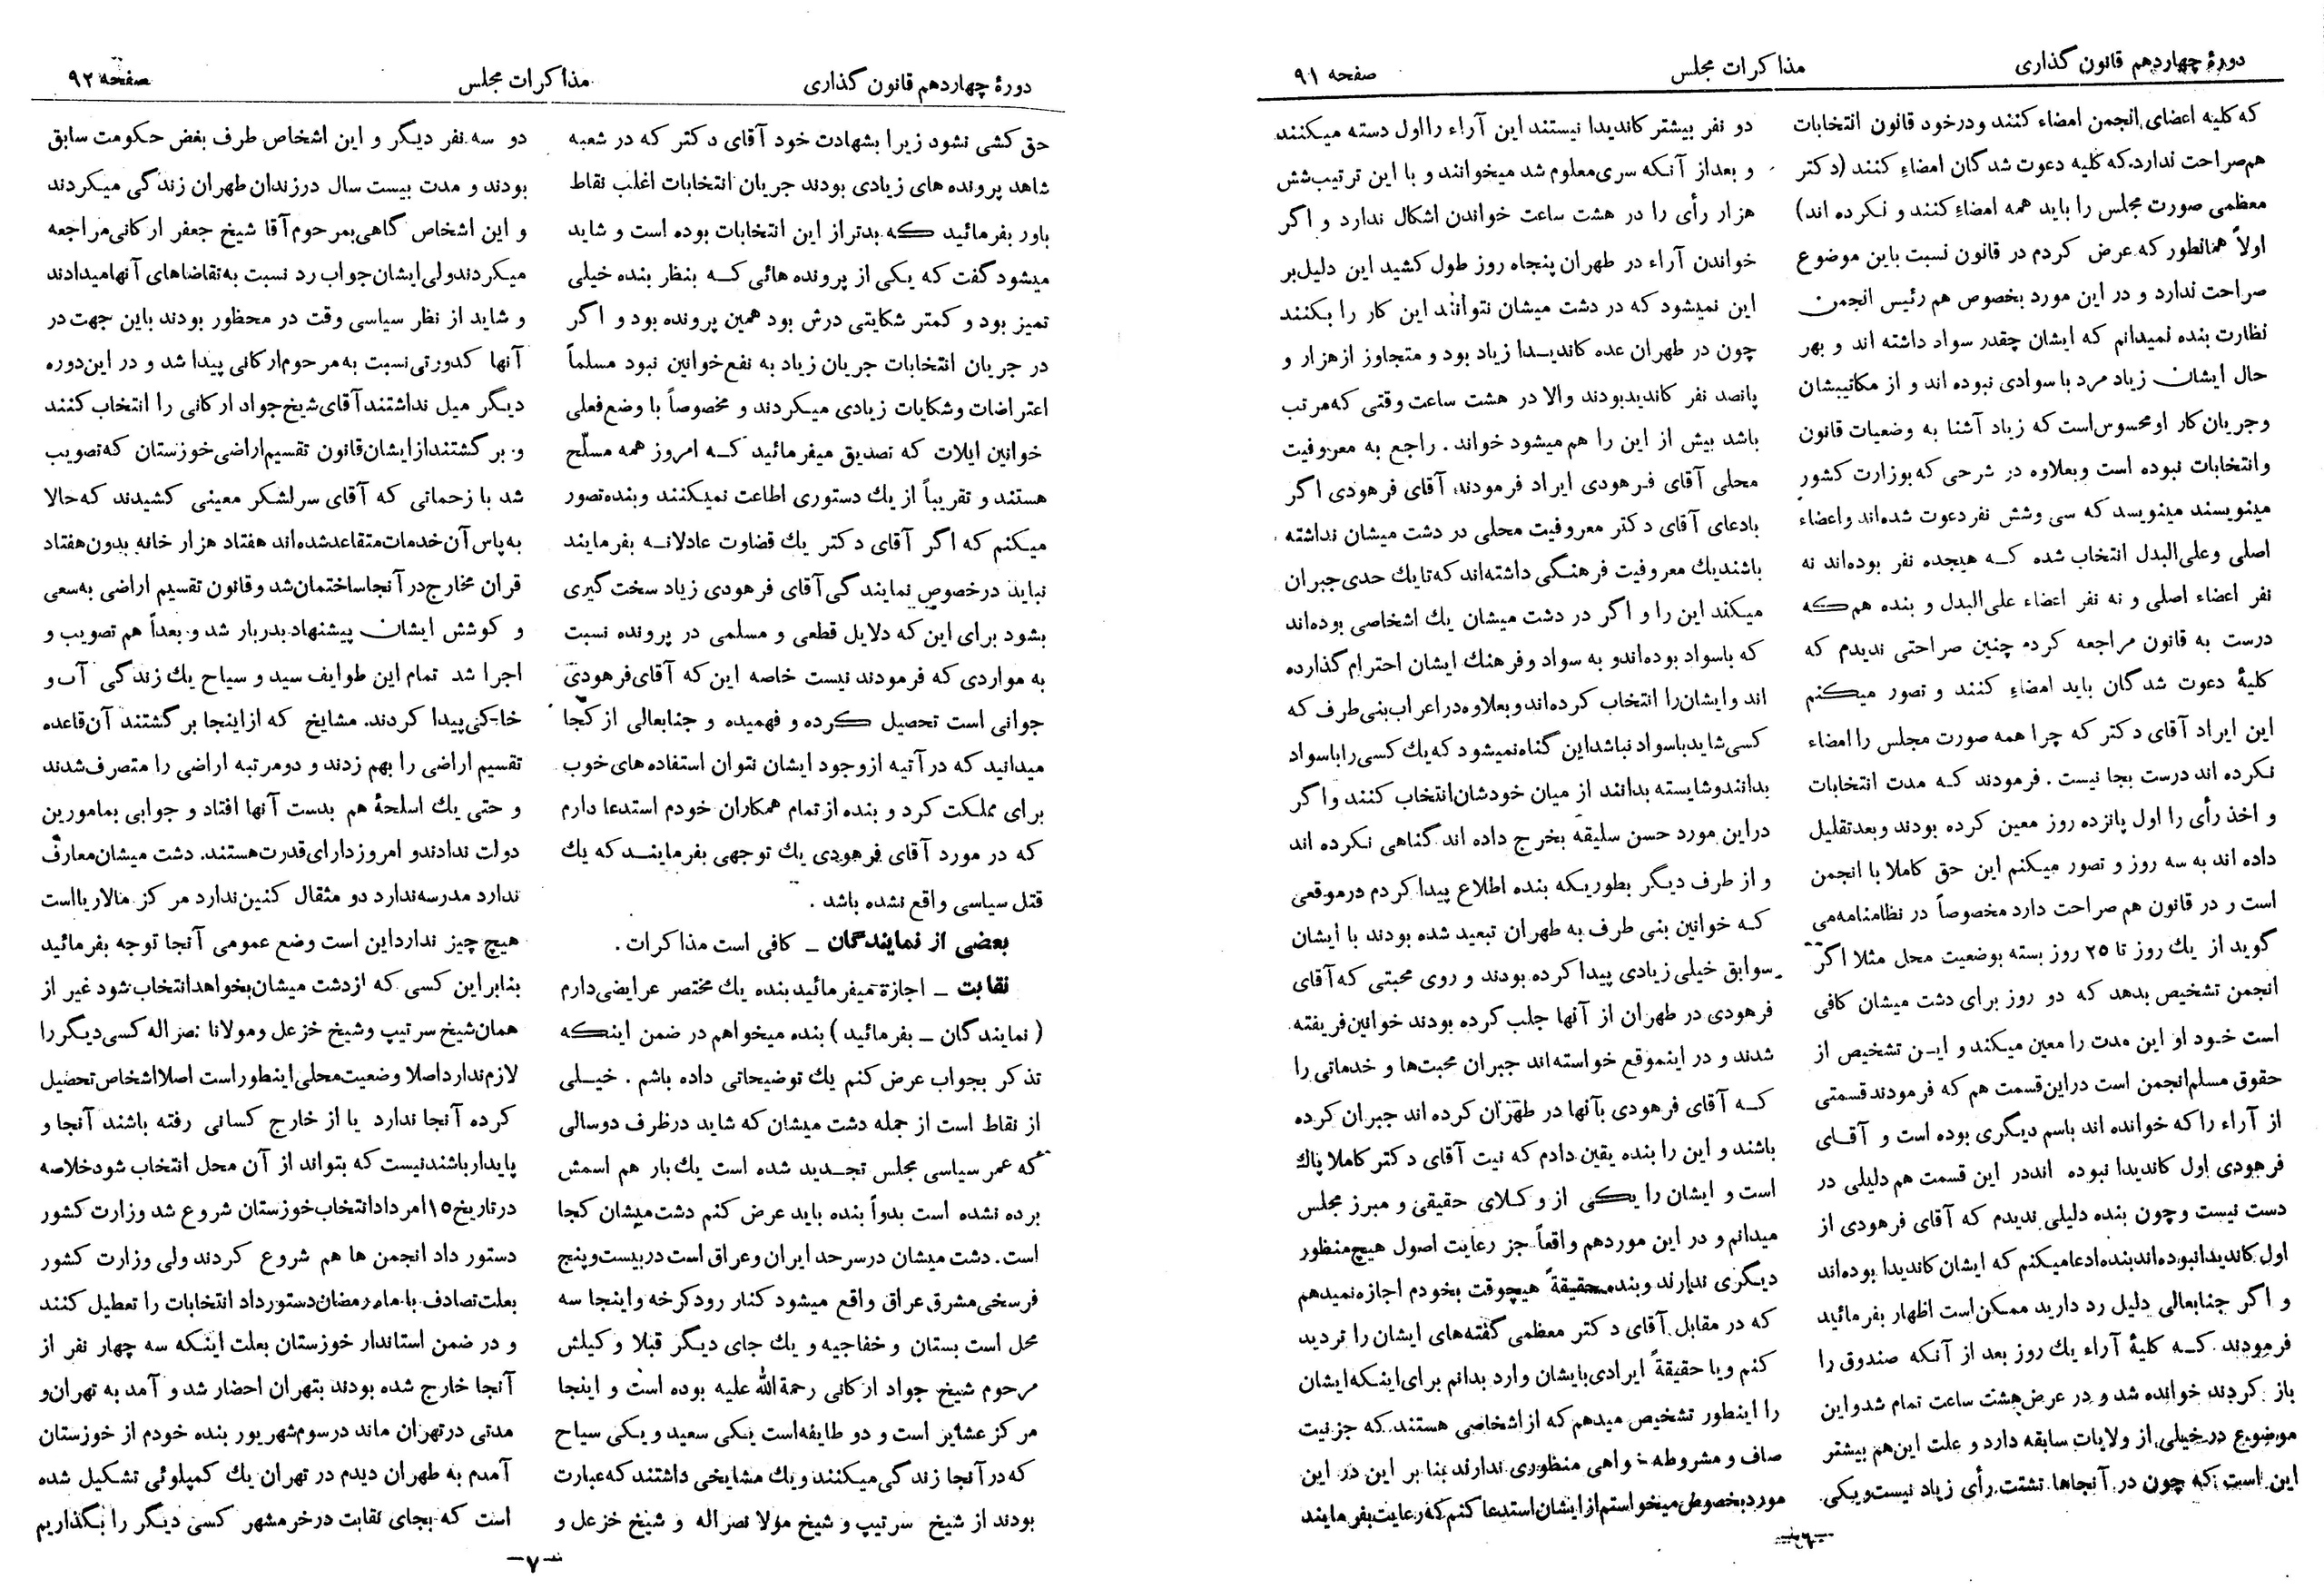 دورهٔ چهاردهم قانون گذاری
مذاکرات مجلس
صفحه ۹۱
که کلیه اعضای انجمن امضاء کنند و درخود قانون انتخابات
هم صراحت ندارد که کلیه دعوت شدگان امضاء کنند (دکتر
معظمی صورت مجلس را باید همه امضاء کنند و نکرده اند)
اولاً همانطور که عرض کردم در قانون نسبت باین موضوع
صراحت ندارد و در این مورد بخصوص هم رئیس انجمن
نظارت بنده نمیدانم که ایشان چقدر سواد داشته اند و بهر
حال ایشان زیاد مرد با سوادی نبوده اند و از مکاتیبشان
و جریان کار او محسوس است که زیاد آشنا به وضعیات قانون
و انتخابات نبوده است و بعلاوه در شرحی که بوزارت کشور
مینویسند مینویسد که سی وشش نفر دعوت شده‌اند و اعضاء
اصلی و علی البدل انتخاب شده کـه هیجده نفر بوده‌اند نه
نفر اعضاء اصلی و نه نفر اعضاء علی البدل و بنده هم که
درست به قانون مراجعه کرده چنین صراحتی ندیدم که
کلیهٔ دعوت شدگان باید امضاء کنند و تصور میکنم
این ایراد آقای دکتر که چرا همه صورت مجلس را امضاء
نکرده اند درست بجا نیست . فرمودند کـه مدت انتخابات
و اخذ رأی را اول پانزده روز معین کرده بودند و بعد تقلیل
داده اند به سه روز و تصور میکنم این حق کاملا با انجمن
است ر در قانون هم صراحت دارد مخصوصاً در نظامنامه می
گوید از یك روز تا ۲۵ روز بسته بوضعیت محل مثلا اگر
انجمن تشخیص بدهد که دو روز برای دشت میشان کافی
است خـود او این مدت را معین میکند و ایـن تشخیص از
حقوق مسلم انجمن است در این قسمت هم که فرمودند قسمتی
از آراء را که خوانده اند باسم دیگری بوده است و آقـای
فرهودی اول کاندیدا نبوده اند در این قسمت هم دلیلی در
دست نیست و چون بنده دلیلی ندیدم که آقای فرهودی از
اول کاندیدا نبوده‌اند بنده ادعا میکنم که ایشان کاندیدا بوده‌اند
و اگر جنابعالی دلیل رد دارید ممکن است اظهار بفرمائید
فرمودند کـه کلیهٔ آراء یك روز بعد از آنکه صندوق را
باز کردند خوانده شد و در عرض هشت ساعت تمام شد و این
موضوع در خیلی از ولایات سابقه دارد و علت این هم بیشتر
این است که چون در آنجاها تشتت رأی زیاد نیست و یکی
دو نفر بیشتر کاندیدا نیستند این آراء را اول دسته میکنند
و بعد از آنکه سری معلوم شد میخوانند و با این ترتیب شش
هزار رأی را در هشت ساعت خواندن اشکال ندارد و اگر
خواندن آراء در طهران پنجاه روز طول کشید این دلیل بر
این نمیشود که در دشت میشان نتوانند این کار را بکنند
چون در طهران عده کاندیـدا زیاد بود و متجاوز از هزار و
پانصد نفر کاندید بودند والا در هشت ساعت وقتی که مرتب
باشد بیش از این را هم میشود خواند . راجع به معروفیت
محلی آقای فـرهودی ایراد فرمودند آقای فرهودی اگر
بادعای آقای دکتر معروفیت محلی در دشت میشان نداشته
باشند یك معروفیت فرهنگی داشته‌اند که تا یك حدی جبران
میکند این را و اگر در دشت میشان یك اشخاصی بوده‌اند
که باسواد بوده‌اند و به سواد و فرهنك ایشان احترام گذارده
اند و ایشان را انتخاب کرده‌اند و بعلاوه در اعراب بنی طرف که
کسی شاید باسواد نباشد این گناه نمیشود که یك کسی را باسواد
بدانند و شایسته بدانند از میان خودشان انتخاب کنند و اگر
در این مورد حسن سلیقه بخرج داده اند گناهی نکرده اند
و از طرف دیگر بطوریکه بنده اطلاع پیدا کردم در موقعی
کـه خوانین بنی طرف به طهران تبعید شده بودند با ایشان
سوابق خیلی زیادی پیدا کرده بودند و روی محبتی که آقای
فرهودی در طهران از آنها جلب کرده بودند خوانین فریفته
شدند و در اینموقع خواسته‌اند جبران محبت‌ها و خدماتی را
کـه آقای فرهودی بآنها در طهران کرده اند جبران کرده
باشند و این را بنده یقین دادم که نیت آقای دکتر کاملا پاك
است و ایشان را یکی از وکـلای حقیقی و مبرز مجلس
میدانم و در این مورد هم واقعاً جز رعایت اصول هیچ منظور
دیگری ندارند و بنده حقیقةً هیچوقت بخودم اجازه نمیدهم
که در مقابل آقای دکتر معظمی گفته‌های ایشان را تردید
کنم و یا حقیقةً ایرادی بایشان وارد بدانم برای اینکه ایشان
را اینطور تشخیص میدهم که از اشخاصی هستند که جز نیت
صاف و مشروطه خواهی منظوری ندارند بنا بر این در این
مورد بخصوص میخواستم از ایشان استدعا کنم که رعایت بفرمایند
–۶–
دورهٔ چهاردهم قانون گذاری
مذاکرات مجلس
صفحه ۹۲
حق کشی نشود زیرا بشهادت خود آقای دکتر که در شعبه
شاهد پرونده های زیادی بودند جریان انتخابات اغلب نقاط
باور بفرمائید که بدتر از این انتخابات بوده است و شاید
میشود گفت که یکی از پرونده هائی کـه بنظر بنده خیلی
تمیز بود و کمتر شکایتی درش بود همین پرونده بود و اگر
در جریان انتخابات جریان زیاد به نفع خوانین نبود مسلماً
اعتراضات و شکایات زیادی میکردند و مخصوصاً با وضع فعلی
خوانین ایلات که تصدیق میفرمائید کـه امروز همه مسلّح
هستند و تقریباً از یك دستوری اطاعت نمیکنند و بنده تصور
میکنم که اگر آقای دکتر یك قضاوت عادلانـه بفرمایند
نباید در خصوص نمایندگی آقای فرهودی زیاد سخت گیری
بشود برای این که دلایل قطعی و مسلمی در پرونده نسبت
به مواردی که فرمودند نیست خاصه این که آقای فرهودی
جوانی است تحصیل کرده و فهمیده و جنابعالی از کجا
میدانید که در آتیه از وجود ایشان نتوان استفاده های خوب
برای مملکت کرد و بنده از تمام همکاران خودم استدعا دارم
که در مورد آقای فرهودی یك توجهی بفرماینـد که یك
قتل سیاسی واقع نشده باشد .
بعضی از نمایندگان ـ کافی است مذاکرات .
نقابت ـ اجازه میفرمائید بنده یك مختصر عرایضی دارم
( نمایندگان ـ بفرمائید ) بنده میخواهم در ضمن اینکه
تذکر بجواب عرض کنم یك توضیحاتی داده باشم . خیـلی
از نقاط است از جمله دشت میشان که شاید در ظرف دو سالی
که عمر سیاسی مجلس تجـدید شده است یك بار هم اسمش
برده نشده است بدواً بنده باید عرض کنم دشت میشان کجا
است . دشت میشان در سرحد ایران و عراق است در بیست و پنج
فرسخی مشرق عراق واقع میشود کنار رود کرخه و اینجا سه
محل است بستان و خفاجیه و یك جای دیگر قبلا وکیلش
مرحوم شیخ جواد ارکانی رحمة الله علیه بوده است و اینجا
مرکز عشایر است و دو طایفه است یکی سعید و یکی سیاح
که در آنجا زندگی میکنند و یك مشایخی داشتند که عبارت
بودند از شیخ سرتیپ و شیخ مولا نصراله و شیخ خزعل و
دو سه نفر دیگر و این اشخاص طرف بغض حکومت سابق
بودند و مدت بیست سال در زندان طهران زندگی میکردند
و این اشخاص گاهی بمرحوم آقا شیخ جعفر ارکانی مراجعه
میکردند ولی ایشان جواب رد نسبت به تقاضاهای آنها میدادند
و شاید از نظر سیاسی وقت در محظور بودند باین جهت در
آنها کدورتی نسبت به مرحوم ارکانی پیدا شد و در این دوره
دیگر میل نداشتند آقای شیخ جواد ارکانی را انتخاب کنند
و برگشتند از ایشان قانون تقسیم اراضی خوزستان که تصویب
شد با زحماتی که آقای سرلشکر معینی کشیدند که حالا
به پاس آن خدمات متقاعد شده‌اند هفتاد هزار خانه بدون هفتاد
قران مخارج در آنجا ساختمان شد و قانون تقسیم اراضی به سعی
و کوشش ایشان پیشنهاد بدربار شد و بعداً هم تصویب و
اجرا شد تمام این طوایف سید و سیاح یك زندگی آب و
خاکی پیدا کردند. مشایخ که از اینجا برگشتند آن قاعده
تقسیم اراضی را بهم زدند و دو مرتبه اراضی را متصرف شدند
و حتی یك اسلحهٔ هم بدست آنها افتاد و جوابی بمامورین
دولت ندادند و امروز دارای قدرت هستند. دشت میشان معارف
ندارد مدرسه ندارد دو مثقال کنین ندارد مرکز مالاریا است
هیچ چیز ندارد این است وضع عمومی آنجا توجه بفرمائید
بنابراین کسی که از دشت میشان بخواهد انتخاب شود غیر از
همان شیخ سرتیپ و شیخ خزعل و مولانا نصراله کسی دیگر را
لازم ندارد اصلا وضعیت محلی اینطور است اصلا اشخاص تحصیل
کرده آنجا ندارد یا از خارج کسانی رفته باشند آنجا و
پایدار باشند نیست که بتواند از آن محل انتخاب شود خلاصه
در تاریخ ۱۵ امرداد انتخاب خوزستان شروع شد وزارت کشور
دستور داد انجمن ها هم شروع کردند ولی وزارت کشور
بعلت تصادف با ماه رمضان دستور داد انتخابات را تعطیل کنند
و در ضمن استاندار خوزستان بعلت اینکه سه چهار نفر از
آنجا خارج شده بودند بتهران احضار شد و آمد به تهران و
مدتی در تهران ماند در سوم شهریور بنده خودم از خوزستان
آمدم به طهران دیدم در تهران یك کمپلوئی تشکیل شده
است که بجای نقابت در خرمشهر کسی دیگر را بگذاریم
–۷–